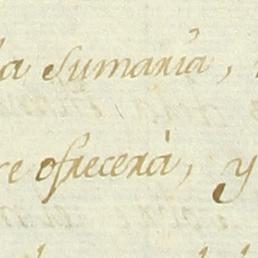 la Sumaria,
re ofrecerà, y